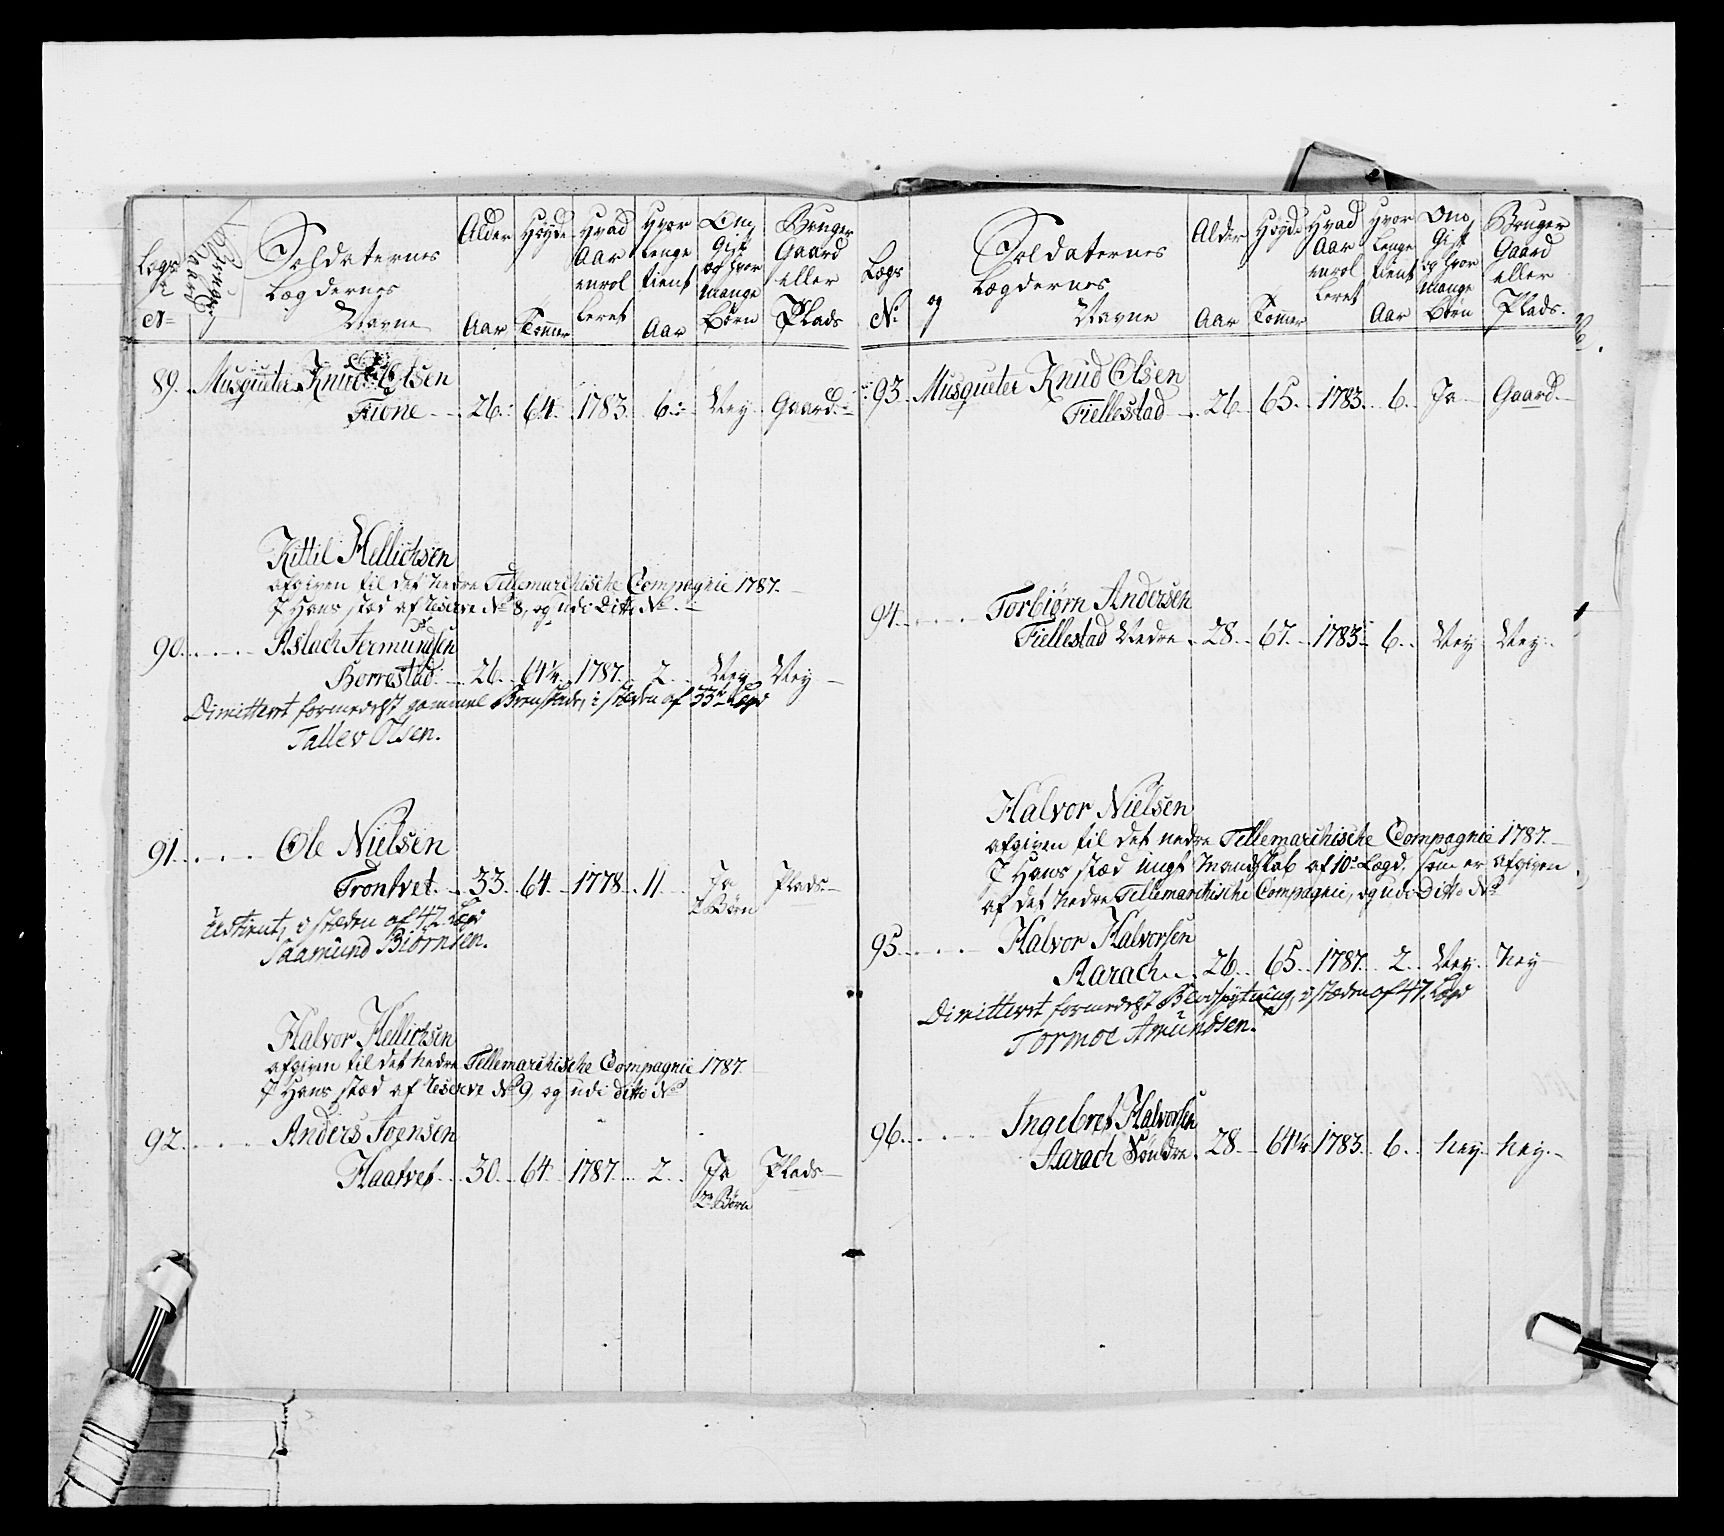 Lægs No
Soldaternes
og Lægdernes
Navne
Alder
Aar
Høyde
Tomer
Hvad
Aar
enrol
leret
Hvor
lenge
tient
Aar
Om
Gift
og hvor
mange
Børn
Bruger
Gaard
eller
Plads
89. Musqueter Knud Olsen
Fione 26. 64. 1783. 6. Ney. Gaard.
Kittil Hellichsen
afgiven til det nedre Tellemarchische Compagnie 1787.
I Hans stæd af Reserve No 8, og udi Ditto No
90. Aslach Jermundsen
Borrestad. 26. 64¼. 1787. 2. Ney Ney
Dimitteret formedelst gammel , i stæden af 33te Lægd
Tallev Olsen.
91. Ole Nielsen
Trontvet. 33. 64. 1778. 11. Ja Plads
2 Børn
i stæden af 42 Lægd
Saamund Biørnsen.
Halvor Hellichsen
afgiven til det nedre Tellemarchische Compagnie 1787
I Hans stæd af Reserve No 9, og udi ditto No
92. Anders Joensen
Haatvet. 30. 64. 1787. 2. Ja Plads
2 Børn
Lægs
No
Soldaternes
og Lægdernes
Navne
Alder
Aar
Høyde
Tomer
Hvad
Aar
enrol
leret
Hvor
lenge
tient
Aar
Om
Gift
og hvor
mange
Børn
Bruger
Gaard
eller
Plads.
93. Musqueter Knud Olsen
Fiellestad 26. 65. 1783. 6. Ja Gaard.
94. Torbiørn Andersen
Fiellestad Nedre 28. 67. 1783. 6. Ney Ney.
Halvor Nielsen
afgiven til det nedre Tellemarchische Compagnie 1787.
I Hans stæd ungt Mandskab af 10de Lægd, som er afgiven
af det nedre Tellemarchische Compagnie, og udi Ditto No
95. Halvor Halvorsen
Aarach. 26. 65. 1787. 2. Ney. Ney
Dimitteret formedelst Blodspytning, i stæden af 47. Lægd
Tormoe Amundsen.
96. Ingebret Halvorsen
Aarach Søndre. 28. 64¼ 1783. 6. Ney Ney.